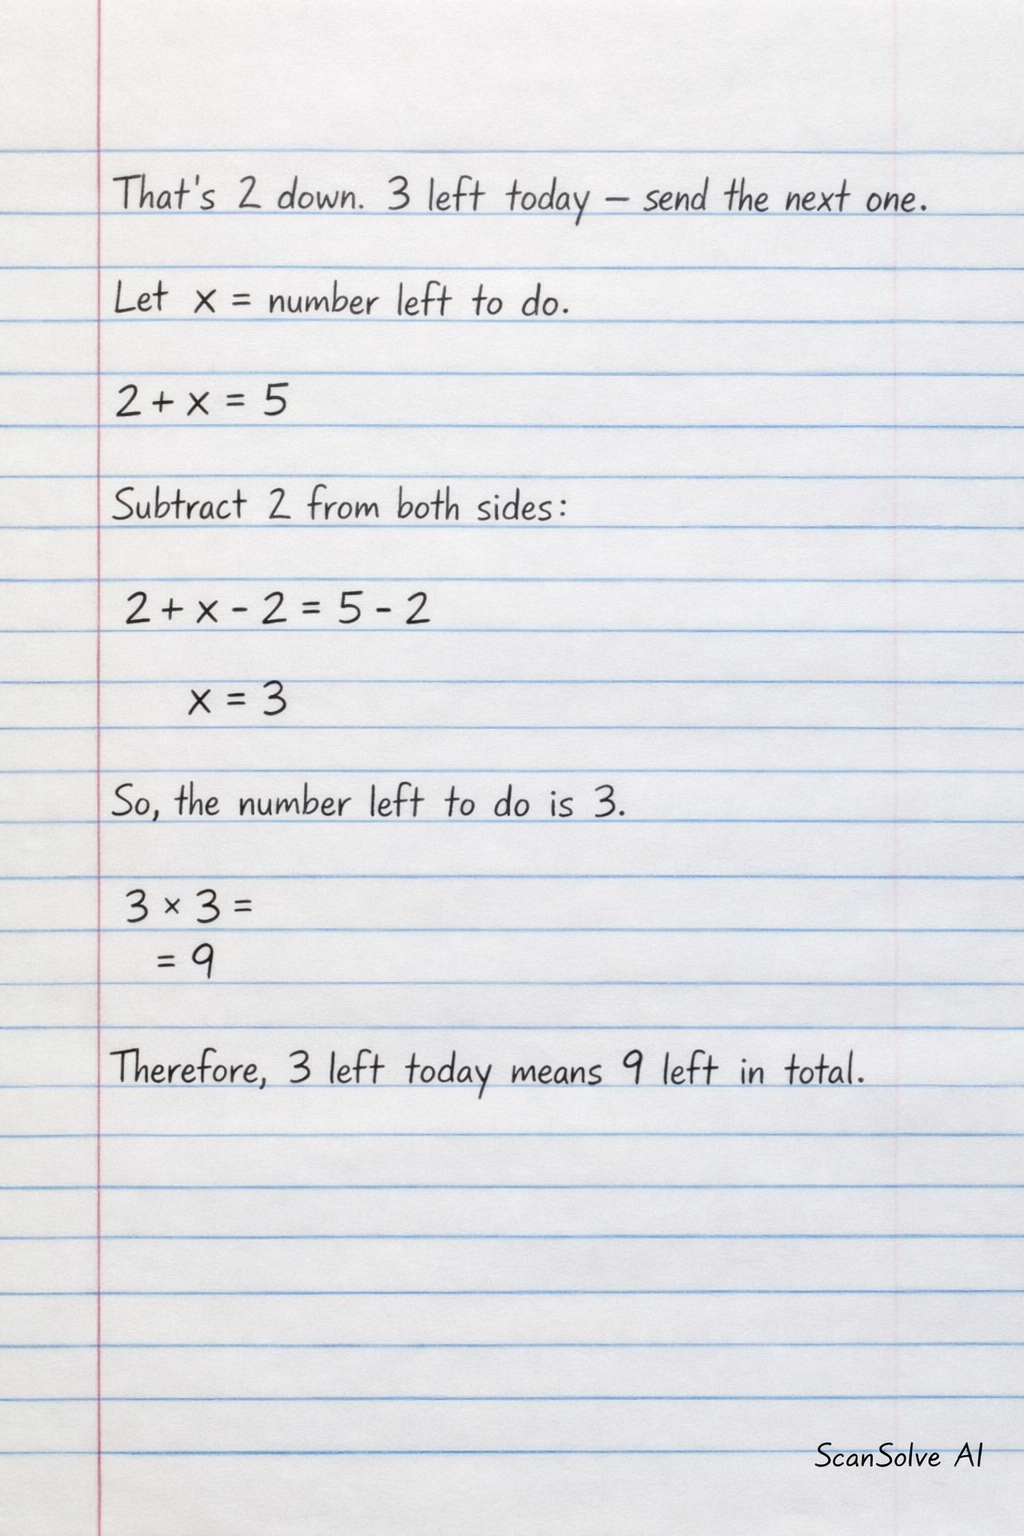 That's 2 down. 3 left today – send the next one.
Let x = number left to do.
2 + x = 5
Subtract 2 from both sides:
2 + x - 2 = 5 - 2
x = 3
So, the number left to do is 3.
3 × 3 =
= 9
Therefore, 3 left today means 9 left in total.
ScanSolve AI